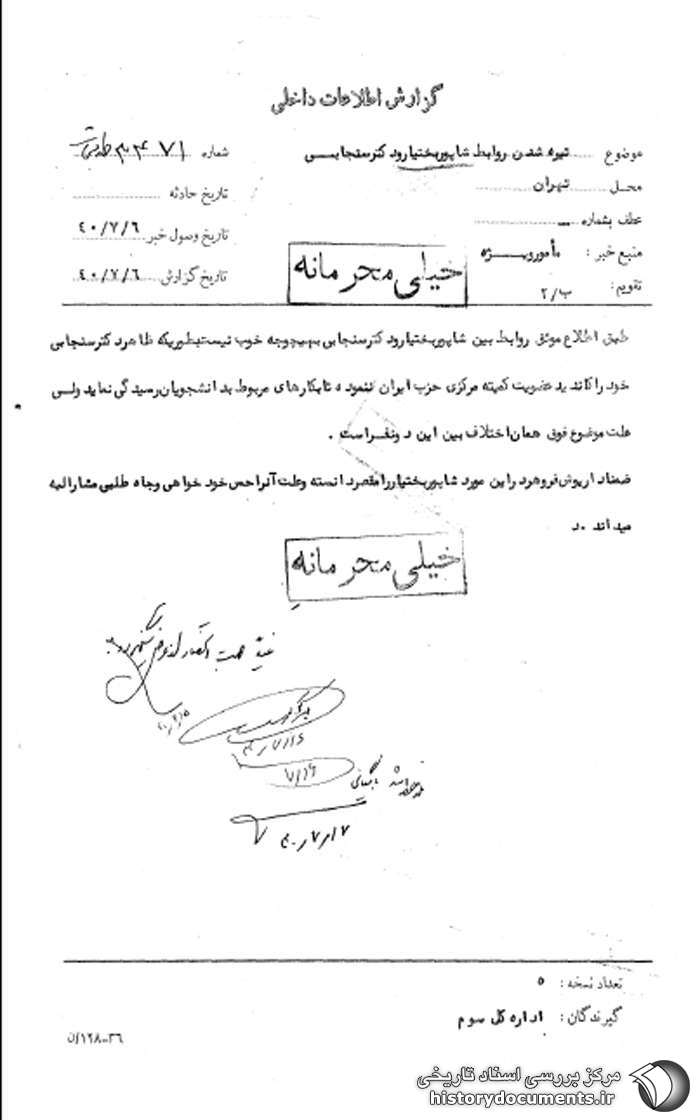 گزارش اطلاعات داخلی
موضوع تیره شدن روابط شاپوربختیارود کترسنجابی
شماره ۳۴۷۱
محل تهران
تاریخ حادثه
عطف بشماره
تاریخ وصول خبر ۴۰/۷/۶
منبع خبر : مأمورویژه
تاریخ گزارش ۴۰/۷/۶
تقویم: ب/۲
خیلی محرمانه
طبق اطلاع موثق روابط بین شاپوربختیارود کترسنجابی بهیچوجه خوب نیست بطوریکه ظاهرد کترسنجابی
خود را کاندید عضویت کمیته مرکزی حزب ایران ننموده تابکارهای مربوط بدانشجویان رسیدگی نماید ولی
علت موضوع فوق همان اختلاف بین این د ونفراست .
ضمناد اریوش فروهرد راین مورد شاپوربختیاررامقصرد انسته وعلت آنراحس خود خواهی وجاه طلبی مشارالیه
مید اند .د
خیلی محرمانه
۴۰/۷/۱۶
۷/۱۶
بایگانی
۴۰/۷/۱۷
تعداد نسخه : ۵
گیرندگان : اداره کل سوم
۳۶-۱۲۸/ن
مرکز بررسی اسناد تاریخی
historydocuments.ir